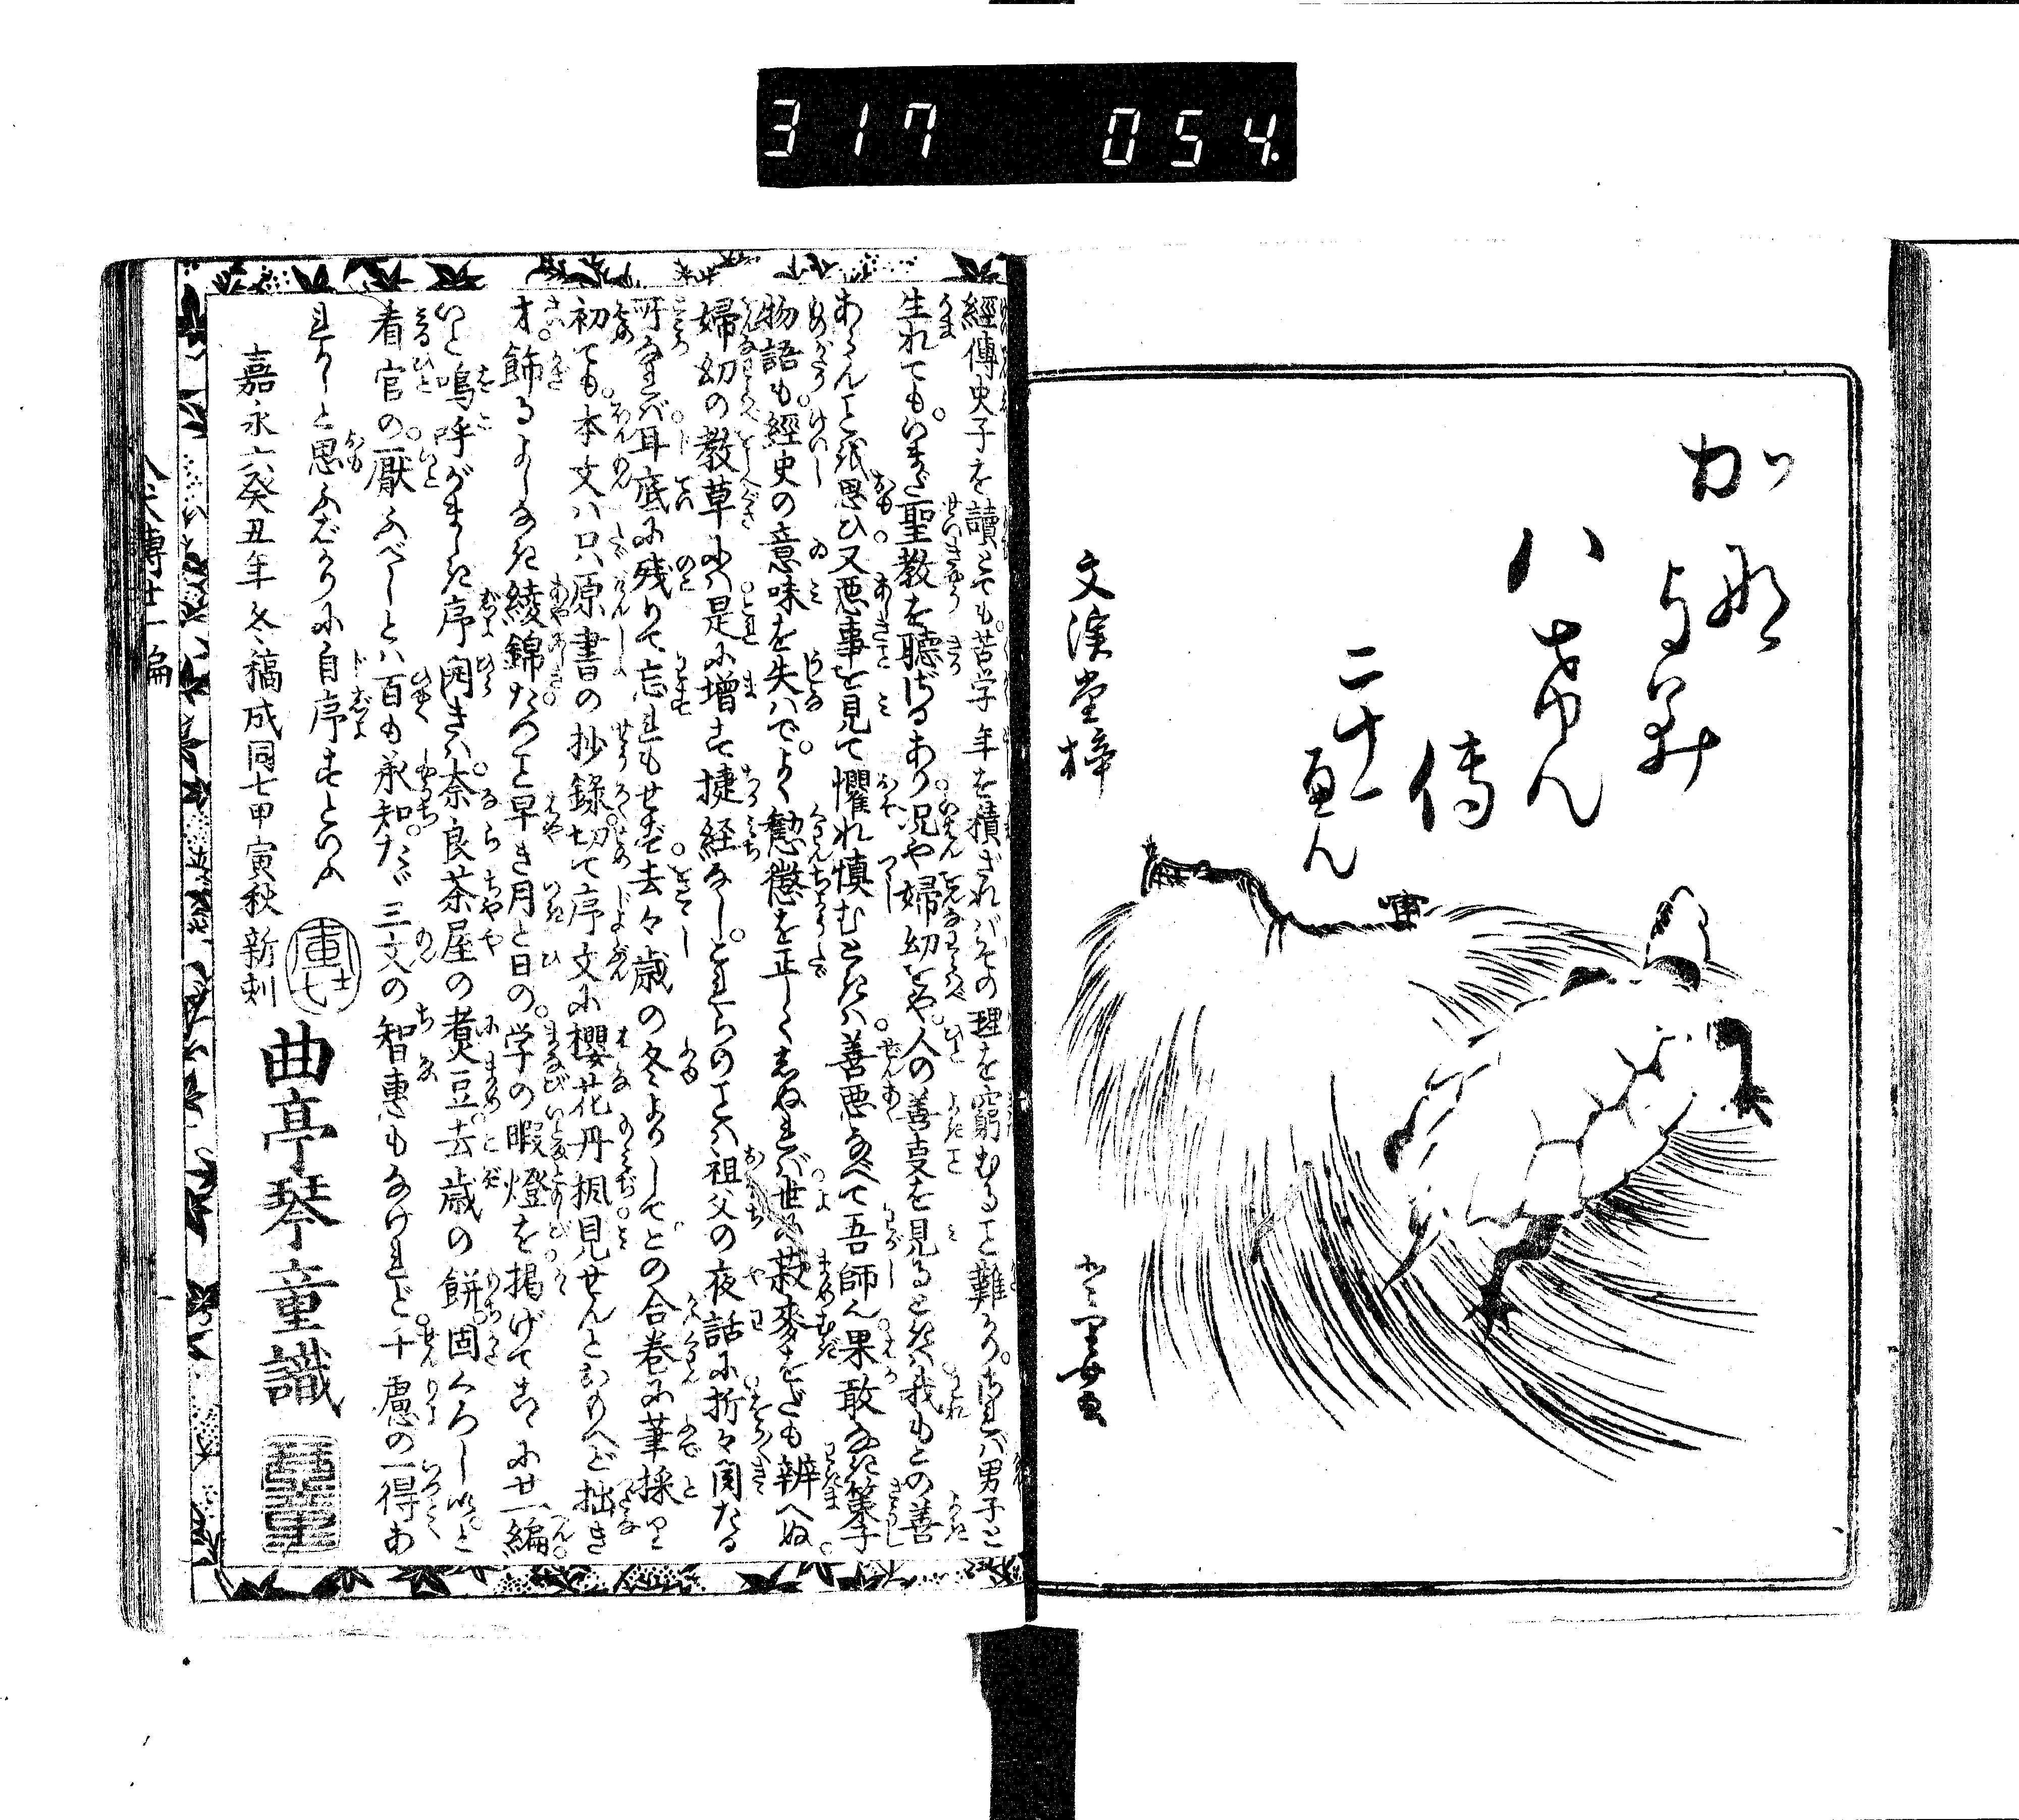 317 054.
カツ
那
与みの
八
せん
傳
二十一
へん
文渓堂梓
經傳史子を讀とも。苦学年を積ざればその理を窮むること難かり。されバ男子と
生れても。いまだ聖教を聴ざるあり。况や婦幼をや。人の善事を見るときハ我もこの善
あらんことを思ひ。又悪事を見て懼れ慎むときハ。善悪なべて吾師ん。果敢なき策子
物語も。經史の意味を失ハで。よく勸懲を正しくしぬれバ。世の菽麥をだも辨へぬ。
婦幼の教草にハ。是に増す捷経なし。これらのことハ祖父の夜話に。折々聞たる
所なれバ。耳底に残りて忘れもせず。去々歳の冬よりして。この合巻に筆採り
初ても。本文ハ只原書の抄録。切て序文に櫻花丹楓。見せんとおもへど拙き
才。飾るよしなき綾錦。たつこと早き月と日の。学の暇燈を掲げて。こゝに廿一編
いと嗚呼がましき序開きハ。奈良茶屋の煮豆。去歳の餅。固くろしい。と
看官の。厭ふべしとハ百も承知。たゞ三文の智惠もなけれど。千慮の一得あ
れかしと思ふばかりに自序すといふ
嘉永六癸丑年冬稿成同七甲寅秋新刻
曲亭琴童識